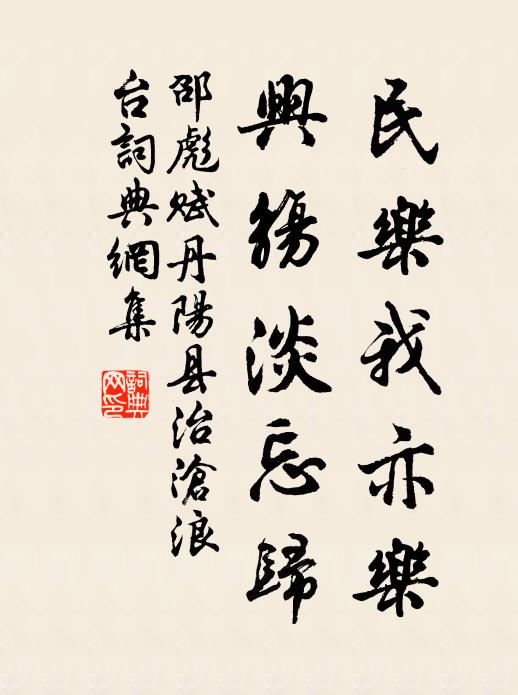 民樂我亦樂
興觴淡忘歸
邵彪賦丹陽县治滄浪
台詞典網集
詞典網印